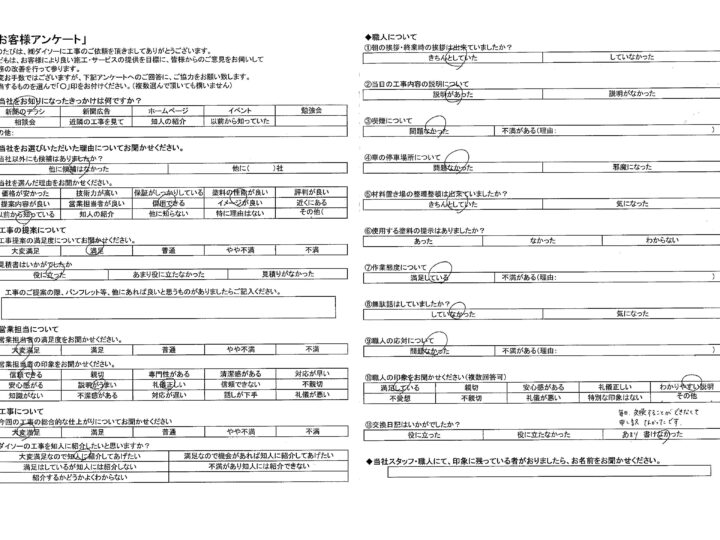 お客様アンケート」
のたびは、㈱ダイソーに工事のご依頼を頂きましてありがとうございます。
どもは、お客様により良い施工・サービスの提供を目標に、皆様からのご意見をお伺いして
務の改善を行って参ります。
変お手数ではございますが、下記アンケートへのご回答に、ご協力をお願い致します。
当するものを選んで「○」印をお付けください。(複数選んで頂いても構いません)
当社をお知りになったきっかけは何ですか?
新聞のチラシ 新聞広告 ホームページ イベント 勉強会
相談会 近隣の工事を見て 知人の紹介 以前から知っていた
の他:
当社をお選びいただいた理由についてお聞かせください。
当社以外にも候補はありましたか?
他に候補はなかった 他に( )社
当社を選んだ理由をお聞かせください。
価格が安かった 技術力が高い 保証がしっかりしている 塗料の性能が良い 評判が良い
提案内容が良い 営業担当者が良い 信用できる イメージが良い 近くにある
以前から知っている 知人の紹介 他に知らない 特に理由はない その他(
工事の提案について
工事提案の満足度についてお聞かせください。
大変満足 満足 普通 やや不満 不満
見積書はいかがでしたか
役に立った あまり役に立たなかった 見積りがなかった
工事のご提案の際、パンフレット等、他にあれば良いと思うものがありましたらご記入ください。
営業担当について
営業担当者の満足度をお聞かせください。
大変満足 満足 普通 やや不満 不満
営業担当者の印象をお聞かせください。
信頼できる 親切 専門性がある 清潔感がある 対応が早い
安心感がある 説明がうまい 礼儀正しい 信頼できない 不親切
知識がない 不潔感がある 対応が遅い 話しが下手 礼儀が悪い
工事について
今回の工事の総合的な仕上がりについてお聞かせください
大変満足 満足 普通 やや不満 不満
ダイソーの工事を知人に紹介したいと思いますか?
大変満足なので知人に紹介してあげたい 満足なので機会があれば知人に紹介してあげたい
満足はしているが知人には紹介しない 不満があり知人には紹介できない
紹介するかどうかよくわからない
◆職人について
①朝の挨拶・終業時の挨拶は出来ていましたか?
きちんとしていた していなかった
②当日の工事内容の説明について
説明があった 説明がなかった
③喫煙について
問題なかった 不満がある(理由: )
④車の停車場所について
問題なかった 邪魔になった
⑤材料置き場の整理整頓は出来ていましたか?
きちんとしていた 気になった
⑥使用する塗料の提示はありましたか?
あった なかった わからない
⑦作業態度について
満足している 不満がある(理由:
⑧無駄話はしていましたか?
していなかった 気になった
⑨職人の応対について
問題なかった 不満がある(理由:
⑩職人の印象をお聞かせください(複数回答可)
満足している 親切 安心感がある 礼儀正しい わかりやすい説明
不愛想 不親切 礼儀が悪い 特別な印象はない その他
毎日、交換することができなくて
申し訳
⑪交換日記はいかがでしたか?
役に立った 役に立たなかった あまり 書けなかった
◆当社スタッフ・職人にて、印象に残っている者がおりましたら、お名前をお聞かせください。